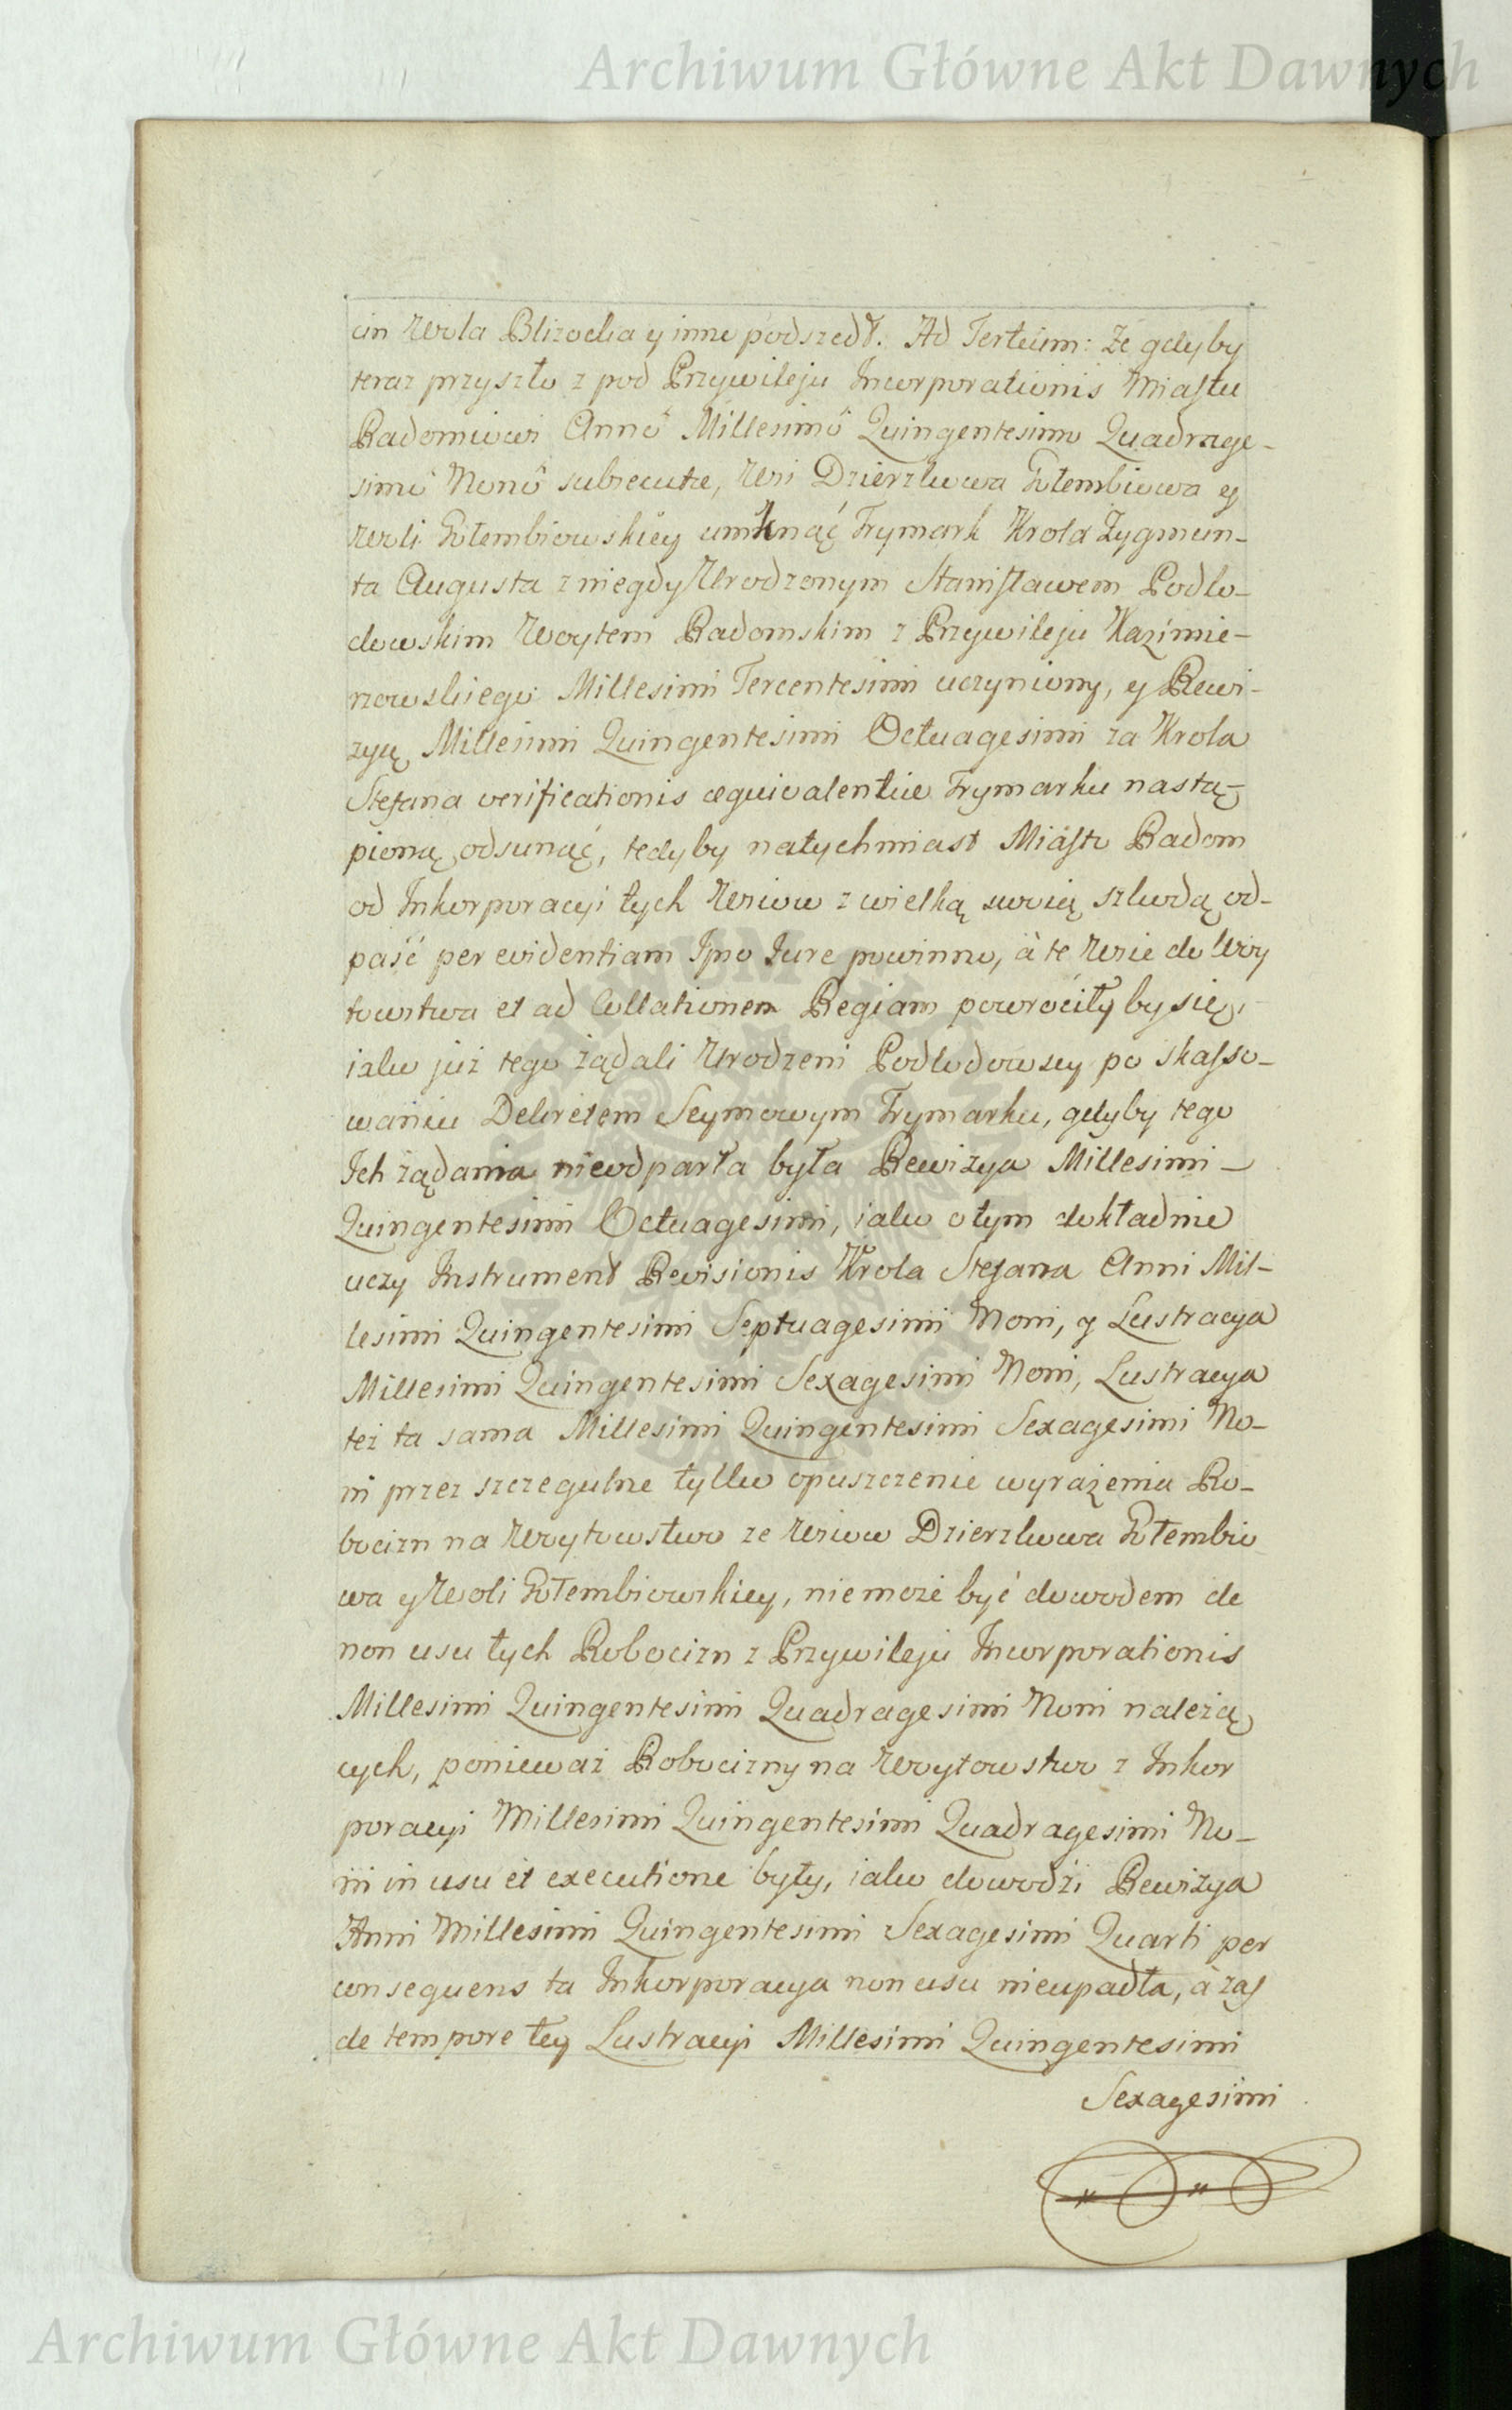 Archiwum Główne Akt Dawnych
cin Wola Blizocka y inne podszedł. Ad Tertium: że gdyby
teraz przyszło z pod Przywileju Incorporationis Miastu
Radomiowi Annô Millesimô Quingentesimo Quadrage-
simô Nonô subsecutæ, Wsi Dzierzkowa Gołembiowa y
Woli Gołembiowskiey umknąć Frymark Krola Zygmun-
ta Augusta z niegdy Urodzonym Stanisławem Podlo-
dowskim Woytem Radomskim z Przywileju Kazimie-
rzowskiego Millesimi Tercentesimi uczyniony, y Rewi-
zyą Millesimi Quingentesimi Octuagesimi za Krola
Stefana verificationis æquivalentiæ Frymarku nastą-
pioną odsunąć, tedyby natychmiast Miasto Radom
od Inkorporacyi tych Wsiow z wielką swoią szkodą od-
paść per evidentiam Ipso Jure powinno, à te Wsie do Woy
towstwa et ad Collationem Regiam powrociłyby się,
iako już tego żądali Urodzeni Podlodowscy po skasso-
waniu Dekretem Seymowym Frymarku, gdyby tego
Ich żądania nieodparła była Rewizya Millesimi-
Quingentesimi Octuagesimi, iako o tym dokładnie
uczy Instrument Revisionis Krola Stefana Anni Mil-
lesimi Quingentesimi Septuagesimi Noni, y Lustracya
Millesimi Quingentesimi Sexagesimi Noni, Lustracya
też ta sama Millesimi Quingentesimi Sexagesimi No-
ni przez szczegulne tylko opuszczenie wyrażenia Ro-
bocizn na Woytowstwo ze Wsiow Dzierzkowa Gołembio
wa y Woli Gołembiowskiey, nie może być dowodem de
non usu tych Robocizn z Przywileju Incorporationis
Millesimi Quingentesimi Quadragesimi Noni należą
cych, ponieważ Robocizny na Woytowstwo z Inkor
poracyi Millesimi Quingentesimi Quadragesimi No-
ni in usu et executione były, iako dowodzi Rewizya
Anni Millesimi Quingentesimi Sexagesimi Quarti per
consequens ta Inkorporacya non usu nieupadła, à zaś
de tempore tey Lustracyi Millesimi Quingentesimi
Sexagesimi
Archiwum Główne Akt Dawnych